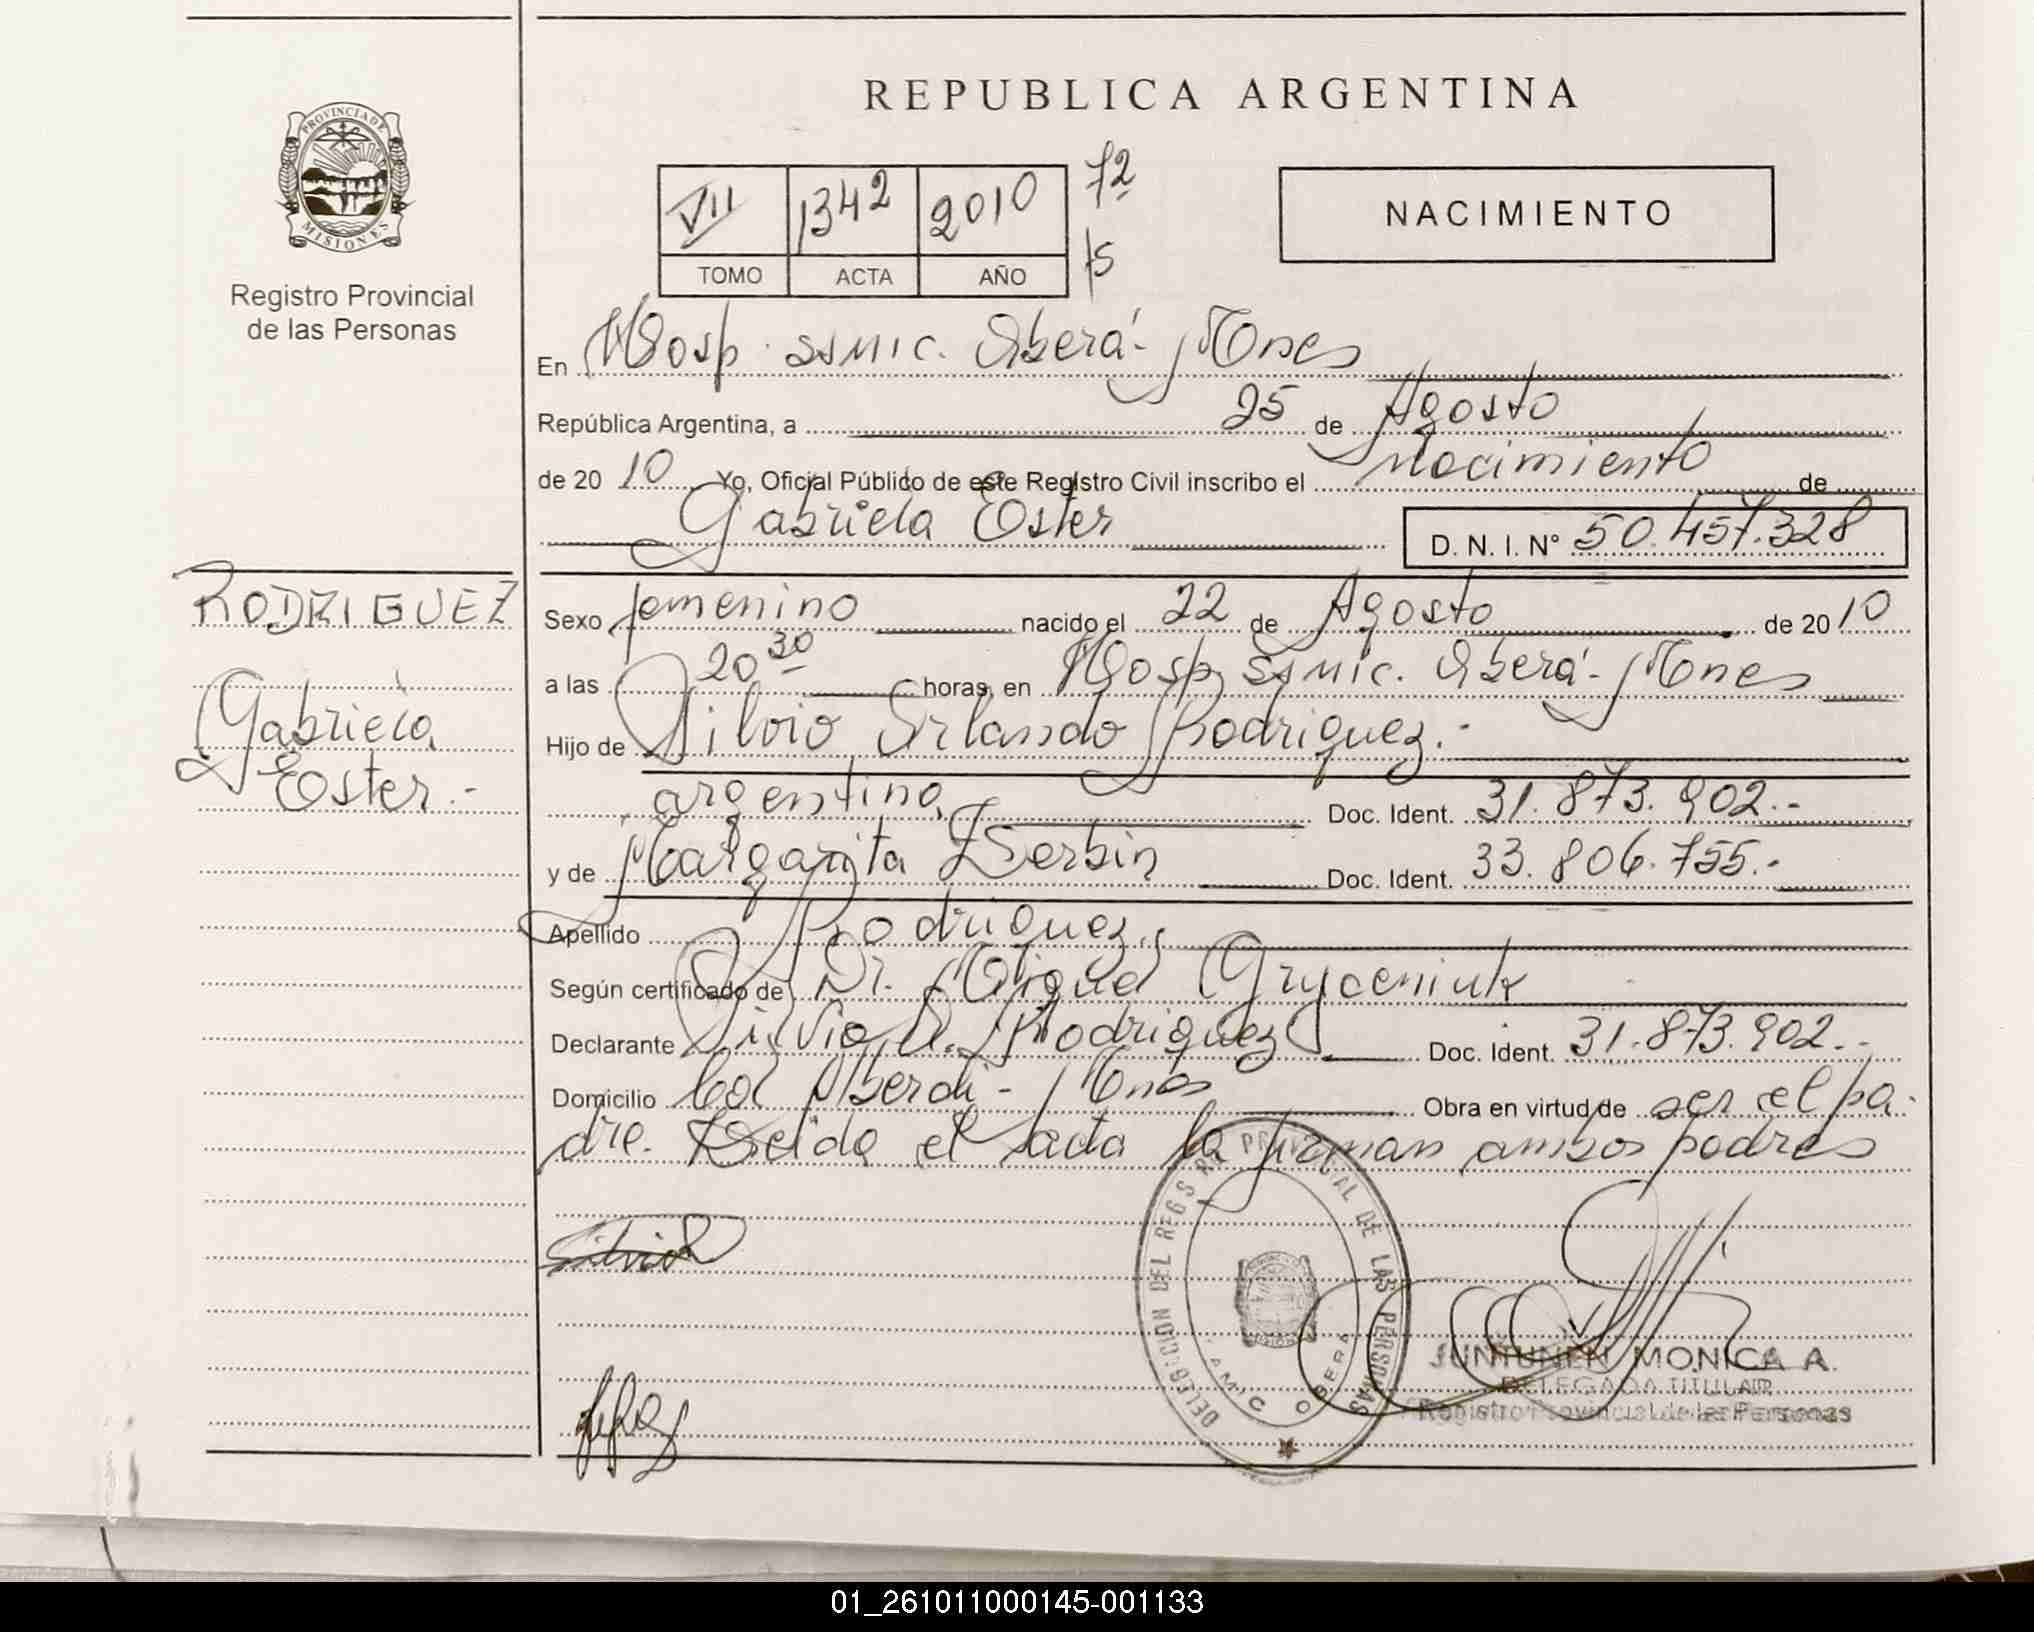 REPUBLICA ARGENTINA
PROVINCIA DE
MISIONES
Registro Provincial
de las Personas
VII 1342 2010 72
15
TOMO ACTA AÑO
NACIMIENTO
En Hosp. SSMIC. Oberá - Mnes
República Argentina, a 25 de Agosto
de 20 10 Yo, Oficial Público de este Registro Civil inscribo el Nacimiento de
Gabriela Ester D. N. I. N° 50.457.328
RODRIGUEZ
Gabriela
Ester.-
Sexo femenino nacido el 22 de Agosto de 20 10
a las 20 30 horas, en Hosp SSMIC. Oberá - Mnes
Hijo de Silvio Orlando Rodriguez.-
argentino Doc. Ident. 31.873.902.-
y de Margarita Derbin Doc. Ident. 33.806.755.-
Apellido Rodriguez
Según certificado de Dr. Miguel Gryceniuk
Declarante Silvio O. Rodriguez Doc. Ident. 31.873.902.-
Domicilio Col Alberdi - Mnes Obra en virtud de ser el pa-
dre. Leida el acta la firman ambos padres
DELEGACION DEL REGS PROVINCIAL DE LAS PERSONAS
SAMIC OBERA
Silvio
JUNTUNEN MONICA A.
DELEGADA TITULAR
Registro Provincial de las Personas
01_261011000145-001133